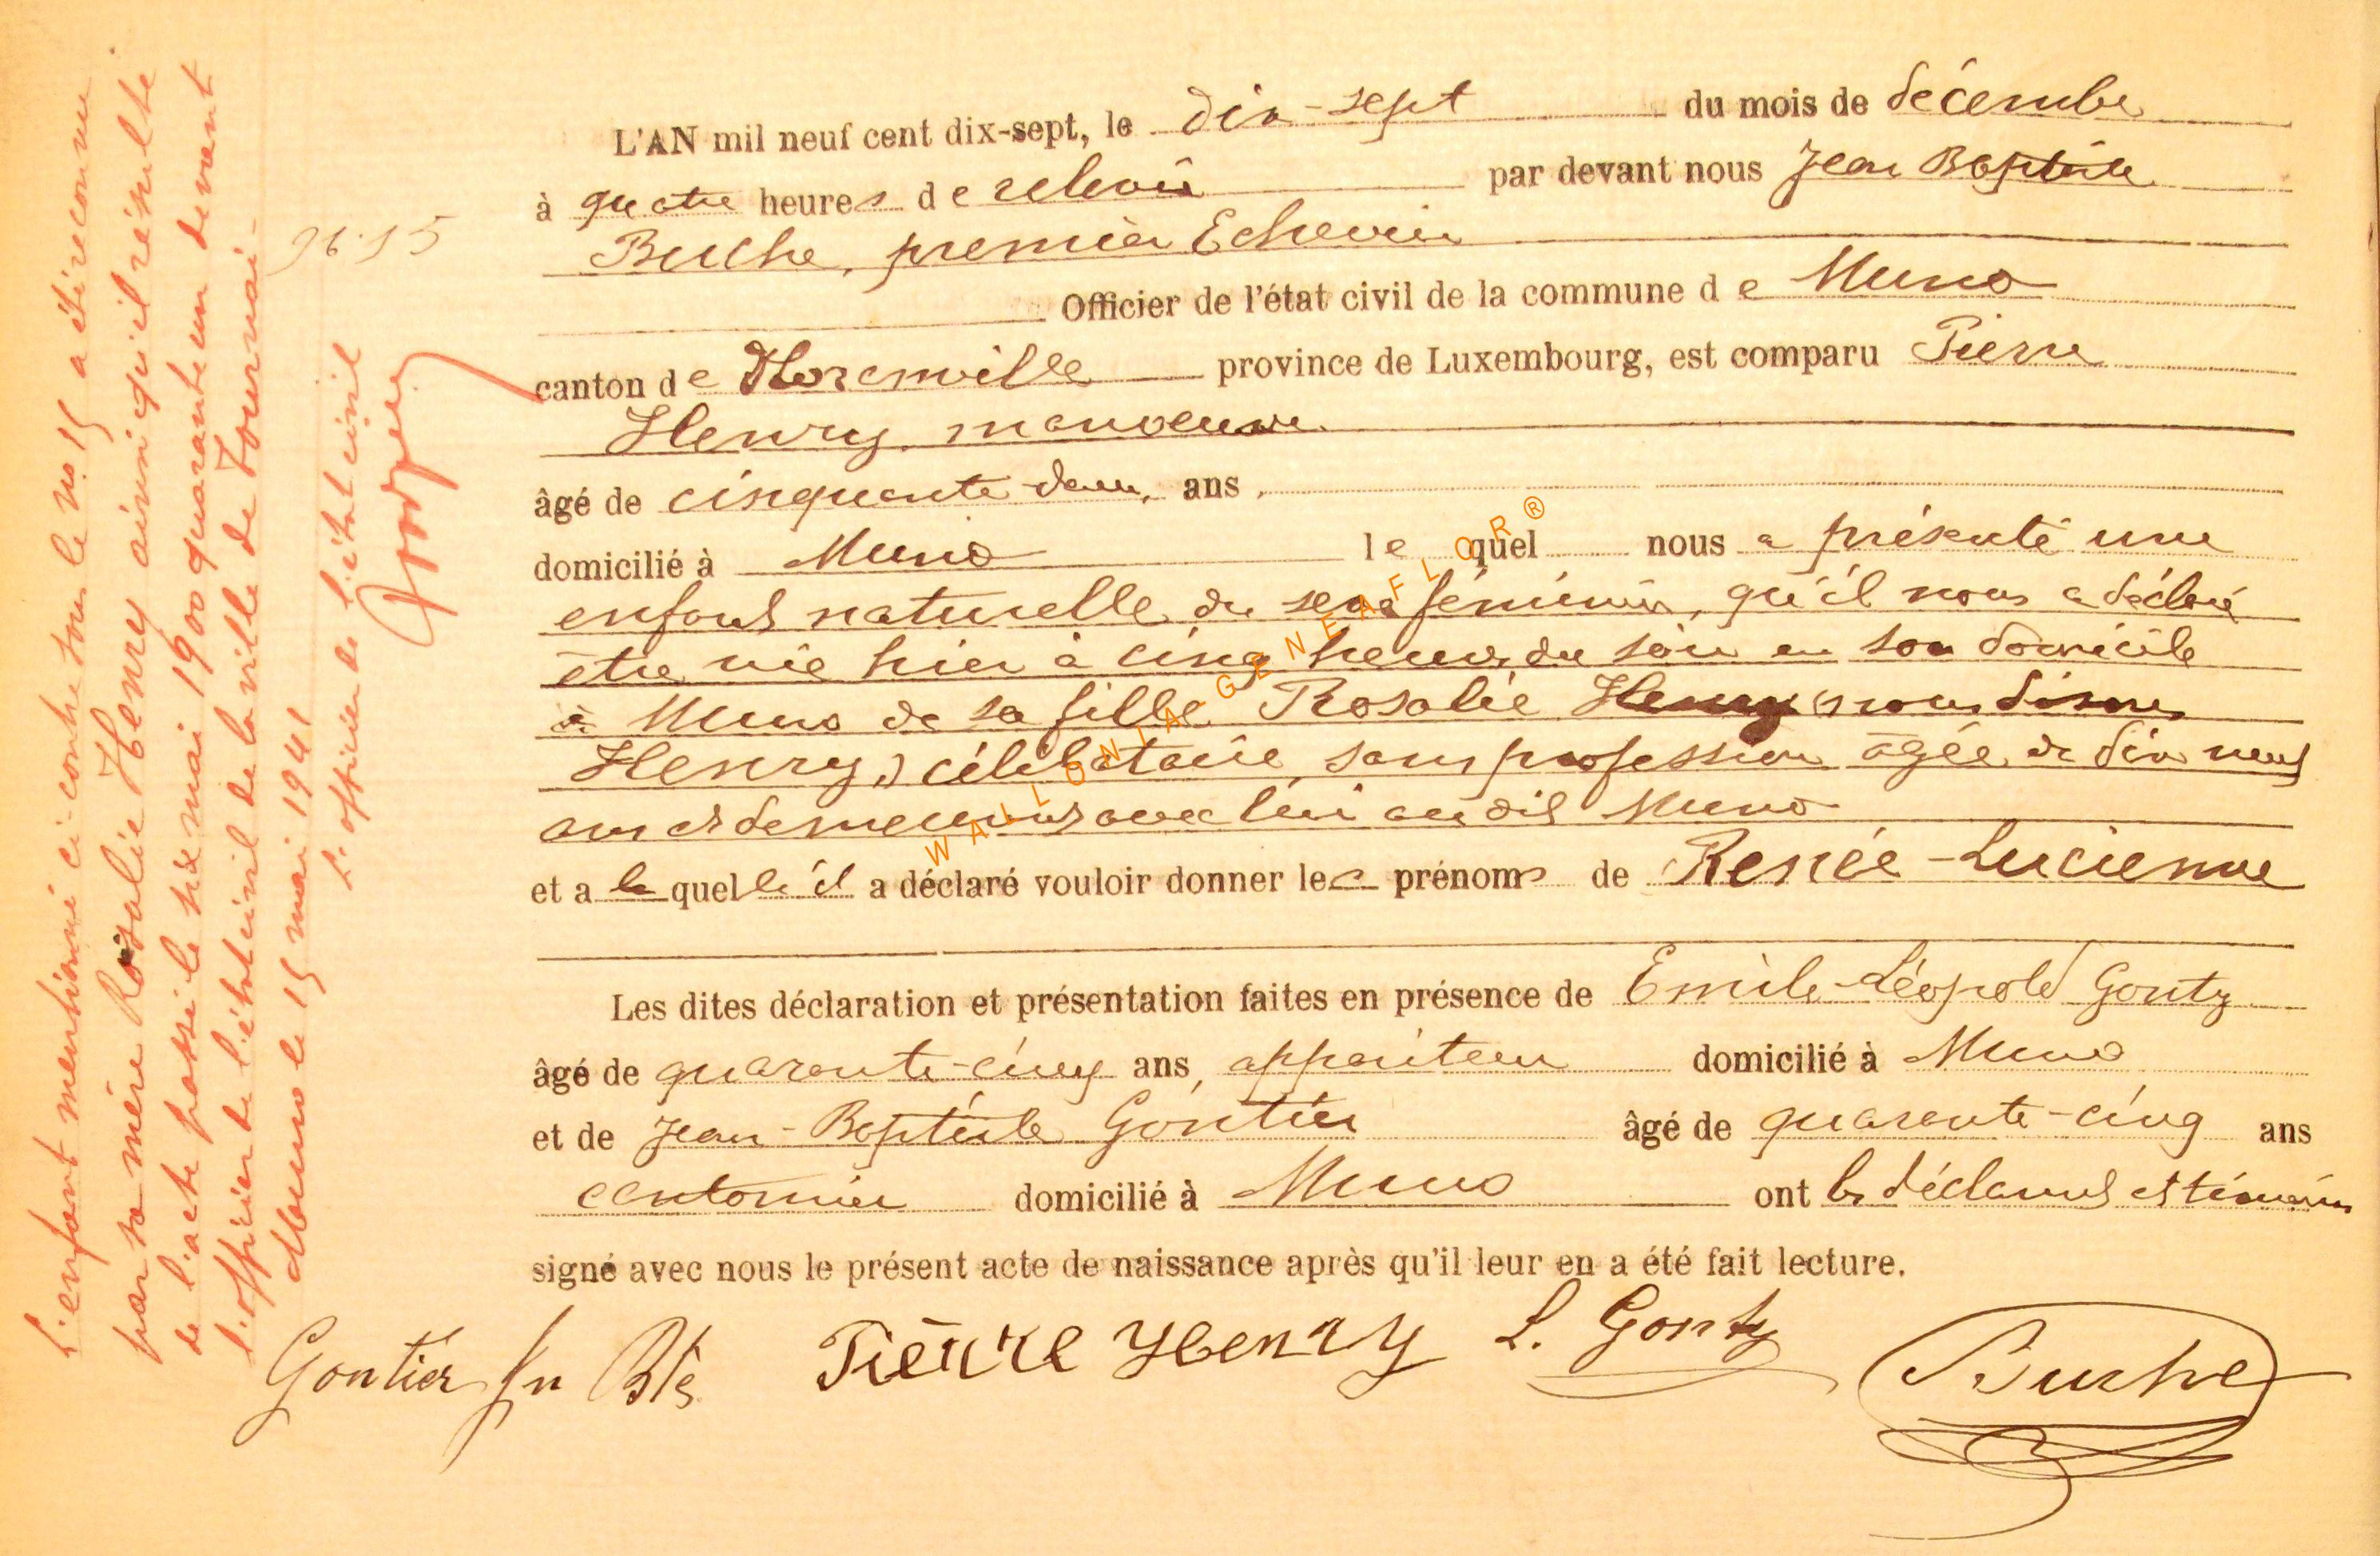 L'AN mil neuf cent dix-sept, le dix-sept du mois de décembre
à quatre heures de relevée par devant nous Jean Baptiste
Buche, premier Echevin
Officier de l'état civil de la commune de Muno
canton de Florenville province de Luxembourg, est comparu Pierre
Henry, manoeuvre
âgé de cinquante deux, ans,
domicilié à Muno lequel nous a présenté une
enfant naturelle du sexe féminin, qu'il nous a déclaré
être née hier à cinq heures du soir en son domicile
à Muno de sa fille Rosalie Henry (nous disons
Henry) célibataire, sans profession âgée de dix neuf
ans et demeurant avec lui au dit Muno
et a laquelle il a déclaré vouloir donner les prénoms de Renée-Lucienne
Les dites déclaration et présentation faites en présence de Emile-Léopold Gonty
âgé de quarante-cinq ans, appariteur domicilié à Muno
et de Jean-Baptiste Gontier âgé de quarante-cinq ans
cantonnier domicilié à Muno ont les déclarant et témoins
signé avec nous le présent acte de naissance après qu'il leur en a été fait lecture.
Gontier Jn Bte Pierre Henry L. Gonty Buche
L'enfant mentionné ci-contre sous le no. 15 a été reconnu
par sa mère Rosalie Henry ainsi qu'il résulte
de l'acte passé le six mai 1900 quarante un devant
l'officier de l'état civil de la ville de Tournai.
Muno le 15 mai 1941
L'officier de l'état civil
No. 15
WALLONIA-GENEAFLOR®